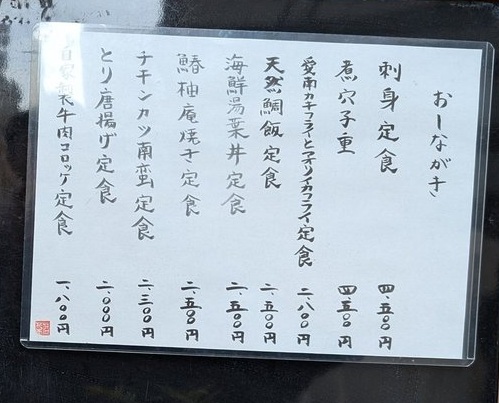 おしながき
刺身定食 四、五〇〇円
煮穴子重 四、五〇〇円
愛南カキフライとアオリイカフライ定食 二、八〇〇円
天然鯛飯定食 二、五〇〇円
海鮮湯葉丼定食 二、五〇〇円
鰆柚庵焼き定食 二、五〇〇円
チキンカツ南蛮定食 二、三〇〇円
とり唐揚げ定食 二、〇〇〇円
自家製牛肉コロッケ定食 一、八〇〇円